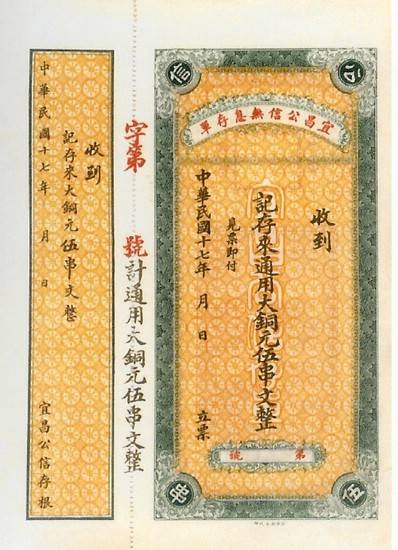 公信
宜昌公信無息存單
收到
記存來通用大銅元伍串文整
見票即付
中華民國十七年 月 日
立票
第 號
伍串
字第 號計通用大銅元伍串文整
收到
記存來大銅元伍串文整
中華民國十七年 月 日
宜昌公信存根